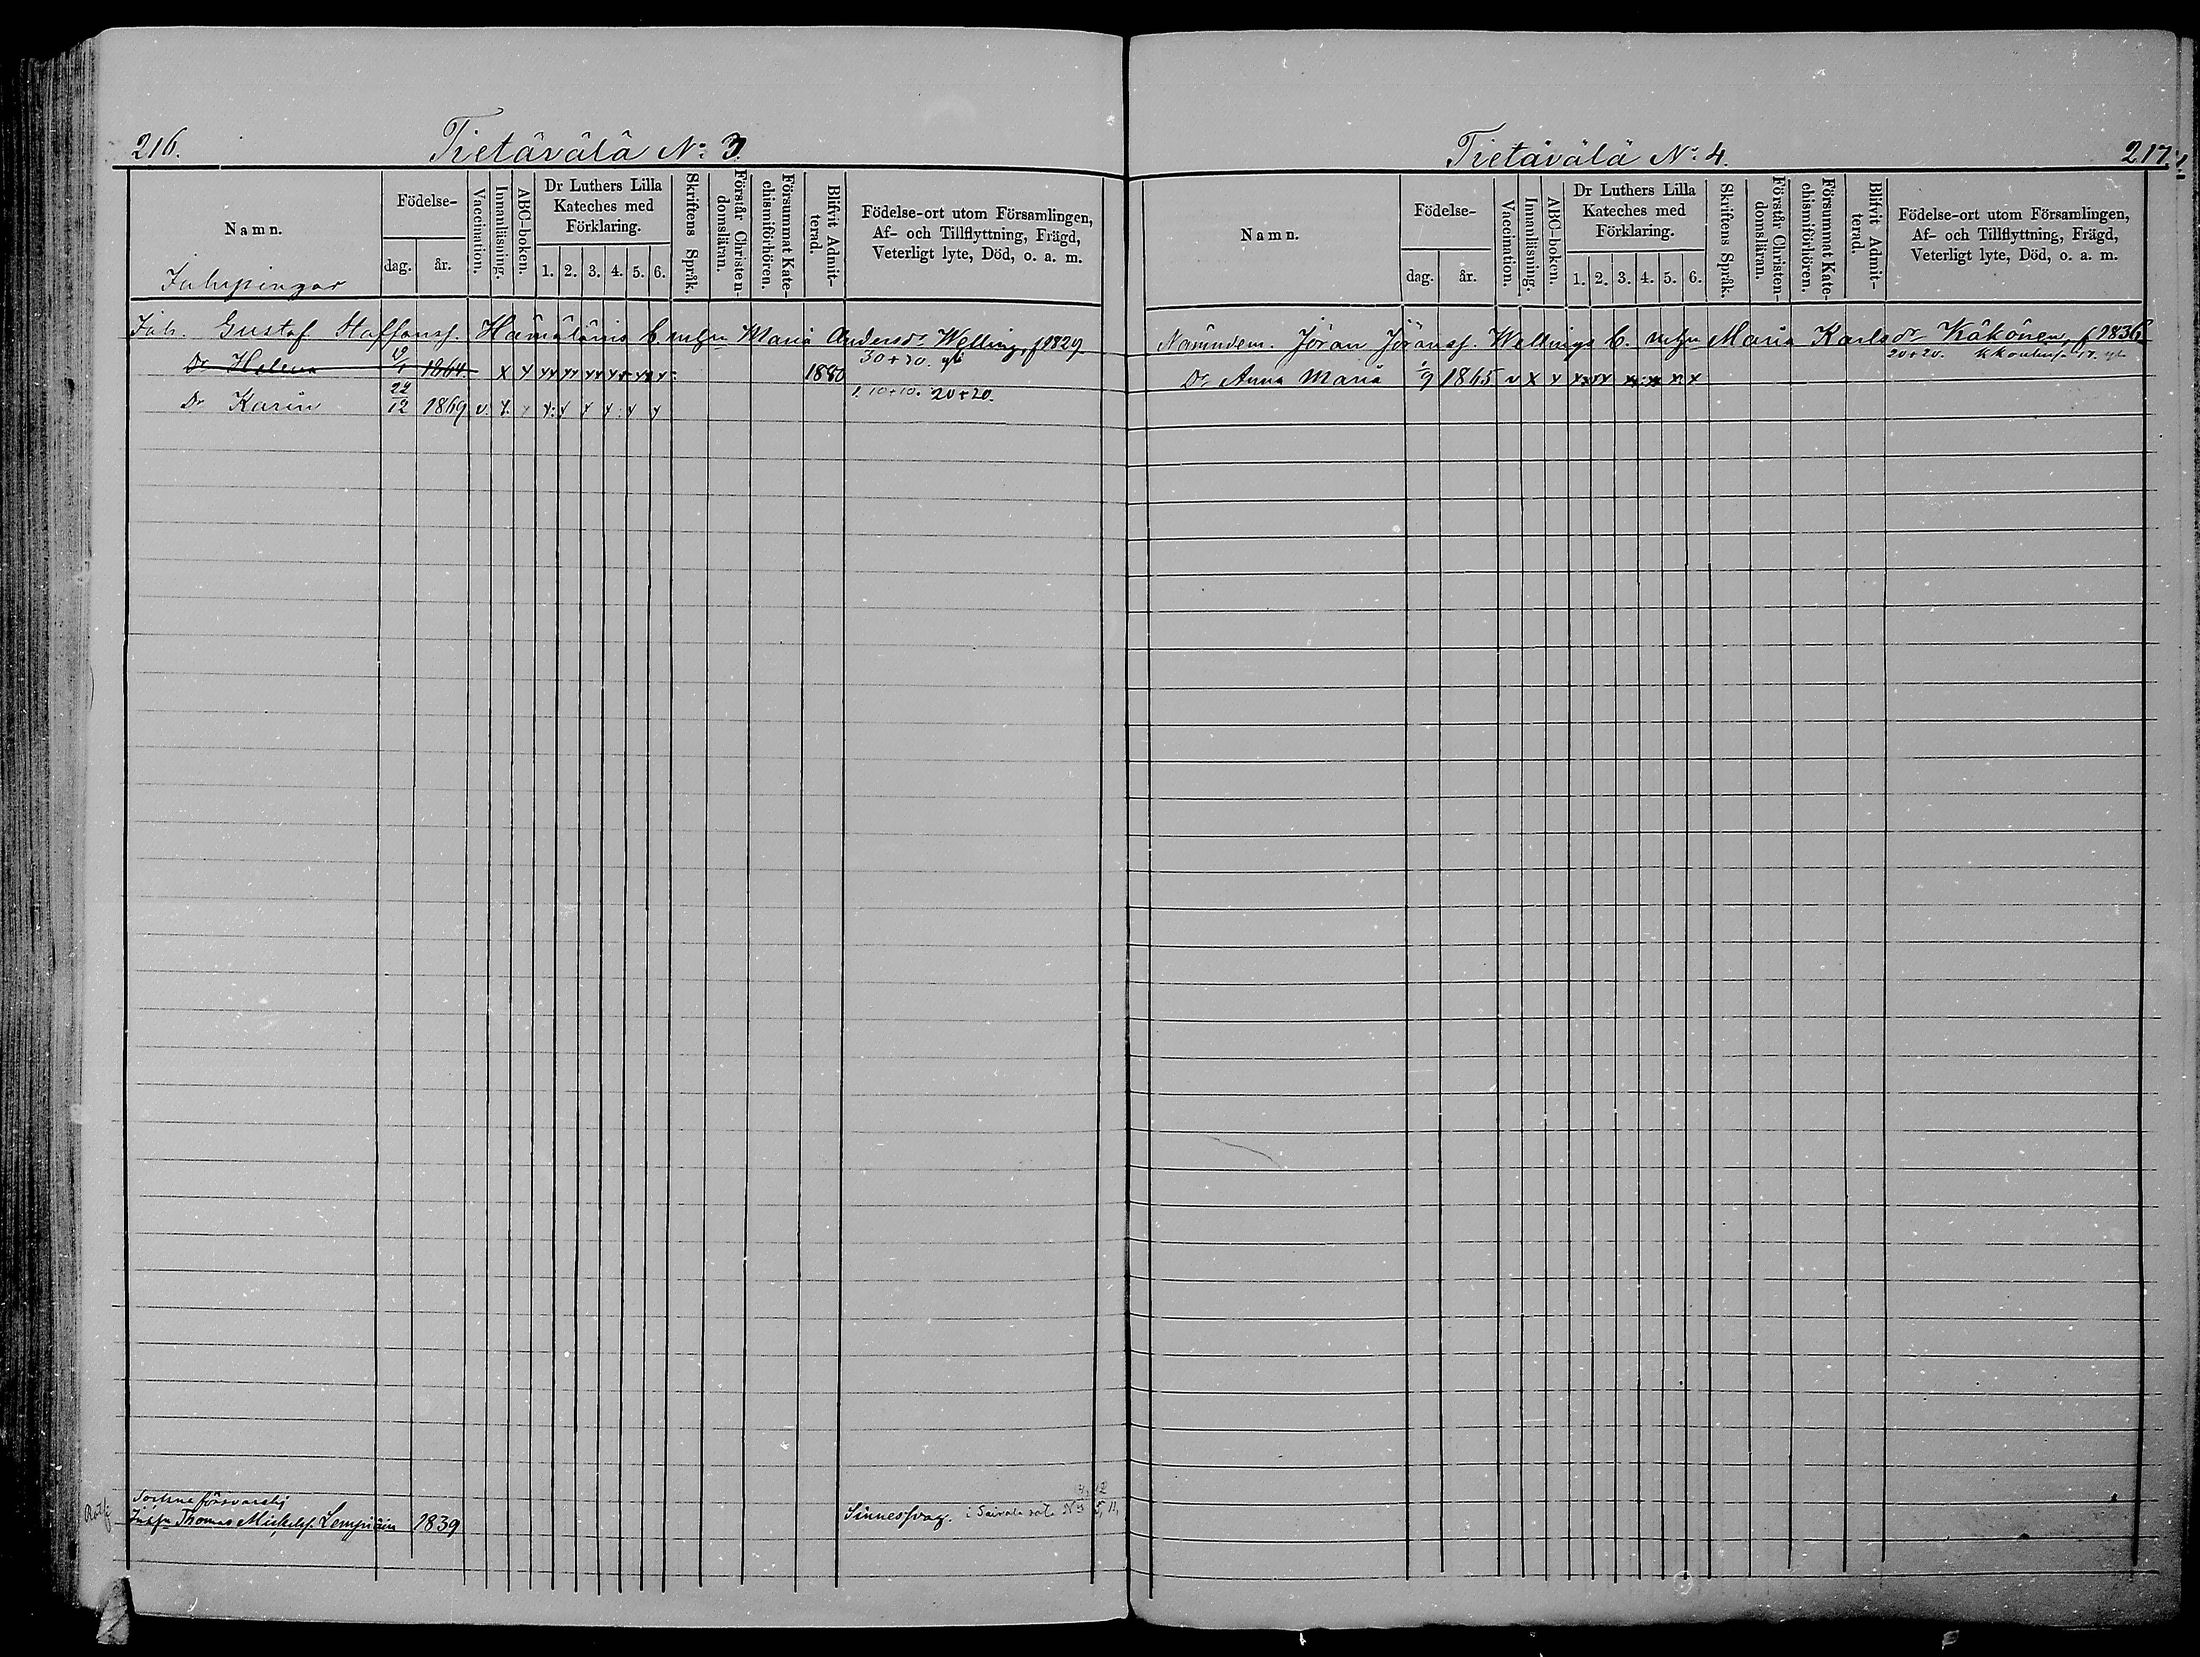 216.
Tietävälä No: 3.
Namn.
Födelse-
dag.
år.
Vaccination.
Innanläsning.
ABC-boken.
Dr Luthers Lilla Kateches med Förklaring.
1. 2. 3. 4. 5. 6.
Skriftens Språk.
Förstår Christen-domsläran.
Försummat Kate-chismiförhören.
Blifvit Admit-terad.
Födelse-ort utom Församlingen,
Af- och Tillflyttning, Frägd,
Veterligt lyte, Död, o. a. m.
Gustaf Staffansf. Hämäläinis Maria Andersdr Welling, f 1829
30+20.
Dr Helena 1864 x x 1880
10+10. 20+20.
Dr Karin 24/12 1869 v.
Thomas Michelsf. Lempiäin 1839 Sinnessvag.
Tietävälä No: 4.
217.
Namn.
Födelse-
dag.
år.
Vaccination.
Innanläsning.
ABC-boken.
Dr Luthers Lilla Kateches med Förklaring.
1. 2. 3. 4. 5. 6.
Skriftens Språk.
Förstår Christen-domsläran.
Försummat Kate-chismiförhören.
Blifvit Admit-terad.
Födelse-ort utom Församlingen,
Af- och Tillflyttning, Frägd,
Veterligt lyte, Död, o. a. m.
Nämndem. Jöran Jöransf. Wellings Maria Karlsdr Käkönen, f 1836
20+20.
Dr Anna Maria 1/9 1865 v x x